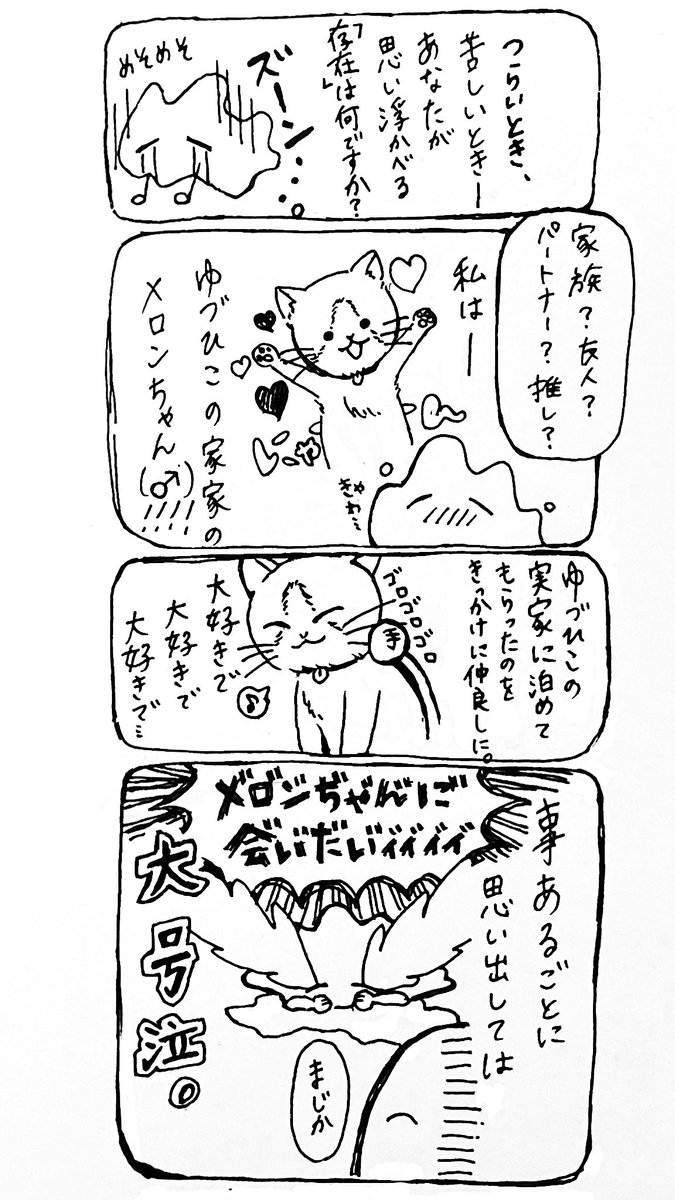 つらいとき、
苦しいとき―
あなたが
思い浮かべる
「存在」は何ですか?
ズーン…。
めそめそ
家族?友人?
パートナー?推し?
私は―
きゃわ…
ゆづひこの家家の
メロンちゃん(♂)!!!!
ゆづひこの
実家に泊めて
もらったのを
きっかけに仲良しに。
ゴロゴロゴロ
手
大好きで
大好きで
大好きで…
事あるごとに
思い出しては
メ゛ロ゛ン゛ぢゃんに゛
会い゛だい゛ィ゛ィ゛ィ゛ィ゛
大号泣。
まじか